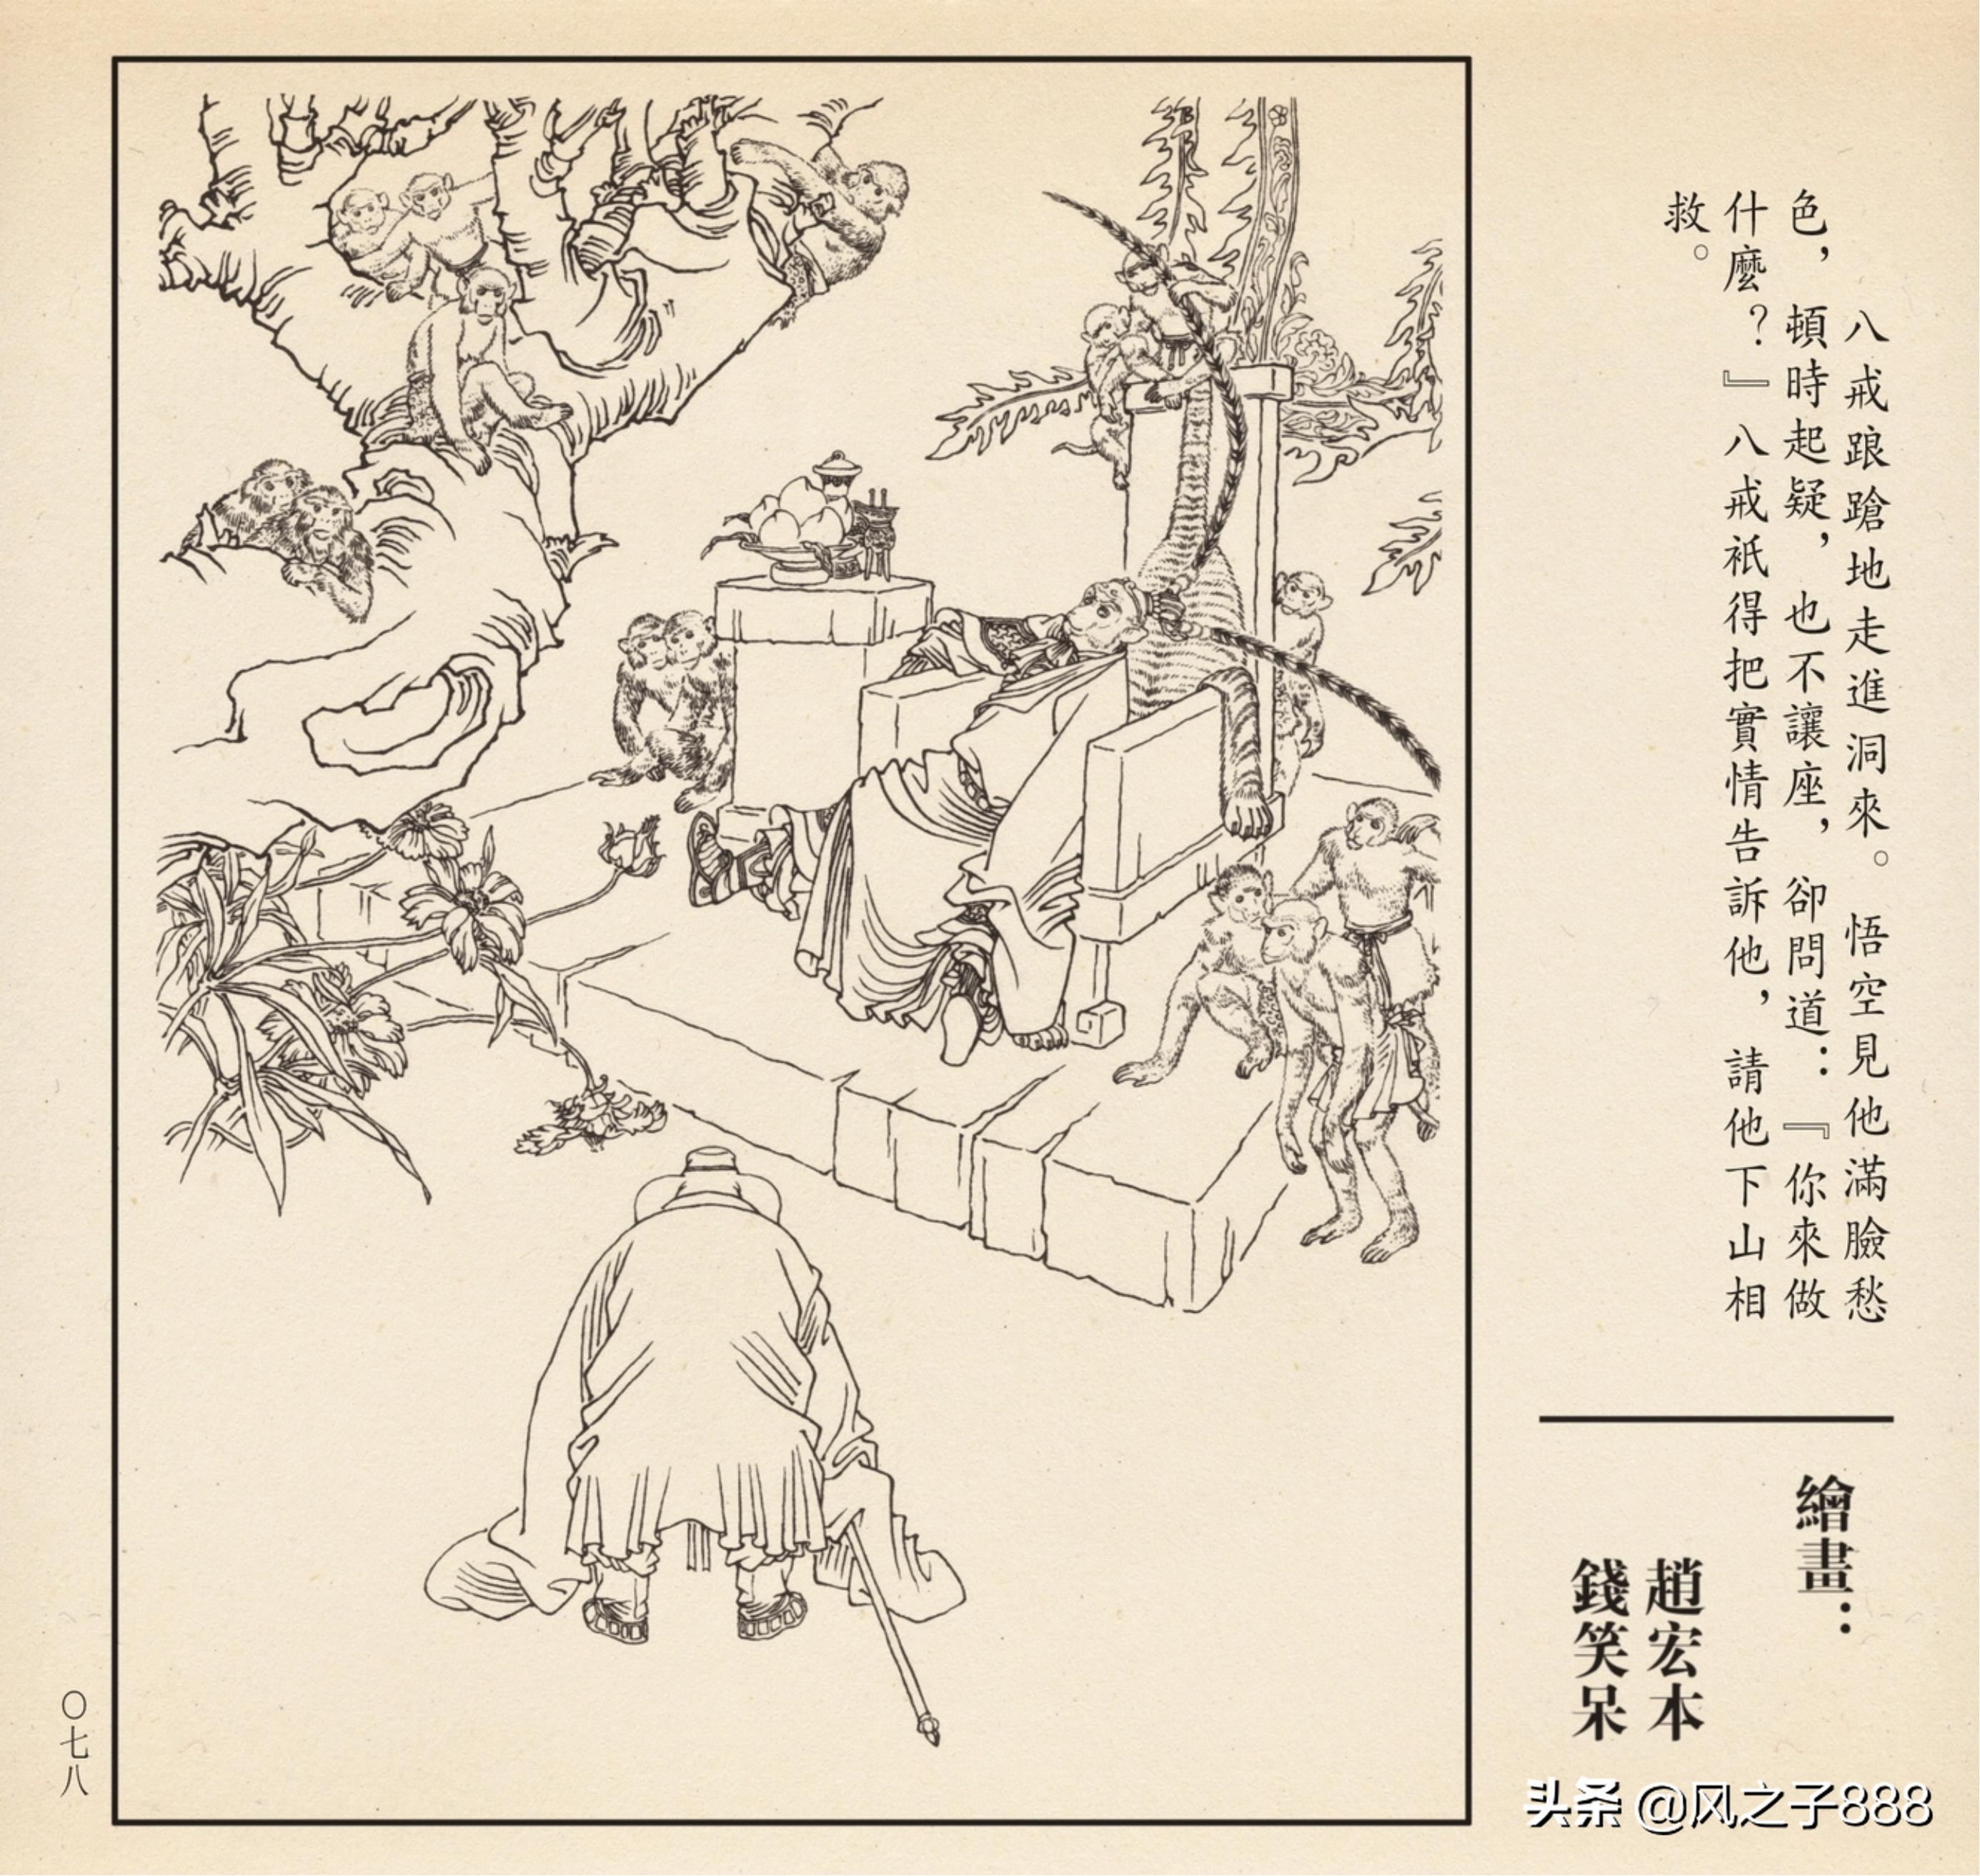 八戒踉蹌地走進洞來。悟空見他滿臉愁
色，頓時起疑，也不讓座，卻問道：『你來做
什麼？』八戒祇得把實情告訴他，請他下山相
救。
繪畫：
趙宏本
錢笑呆
〇七八
头条 @风之子888